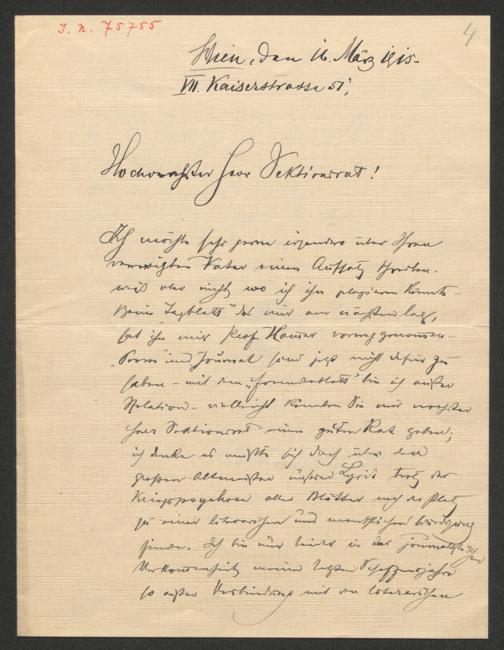 I. N. 75755
4
Wien, den 16. März 1915.
VII. Kaiserstrasse 51,
Hochverehrter Herr Sektionsrat!
Ich möchte sehr gerne irgendwo über Ihren
verewigten Vater einen Aufsatz schreiben,
weiß aber nicht wo ich ihn plazieren könnte
Beim "Tagblatt" das mir am nächsten lag,
hat ihn mir Prof. vorweggenommen.
und Journal sind jetzt nicht dafür zu
haben – mit dem "Fremdenblatt" bin ich außer
Relation – vielleicht könnten Sie mir
Herr Sektionsrat einen guten Rat geben;
ich denke es müßte sich doch über den
großen Altmeister unserer Lyrik trotz der
Kriegspsychose aller Blätter noch ein Platz
zu einer literarischen und menschlichen Würdigung
finden. Ich bin nur leider in der journalistischen
meiner letzten Schaffensjahre
so außer Verbindung mit den literarischen